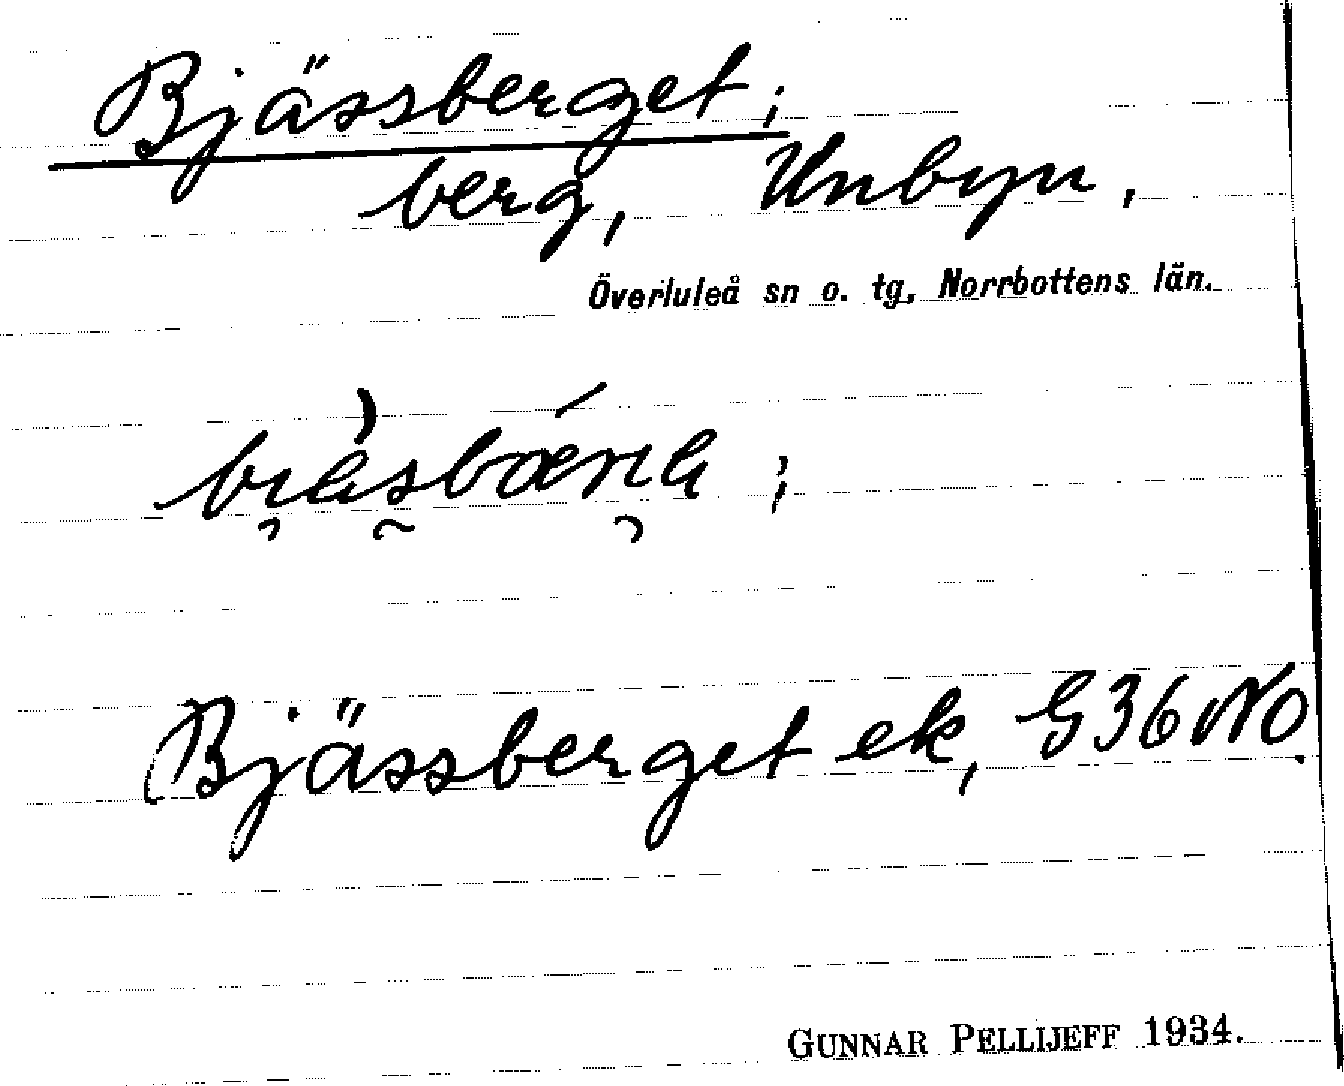 Bjässberget;
berg, Unbyn.
Överluleå sn o. tg, Norrbottens län.
Bjässberget ek, G36NO.
GUNNAR PELLIJEFF 1934.